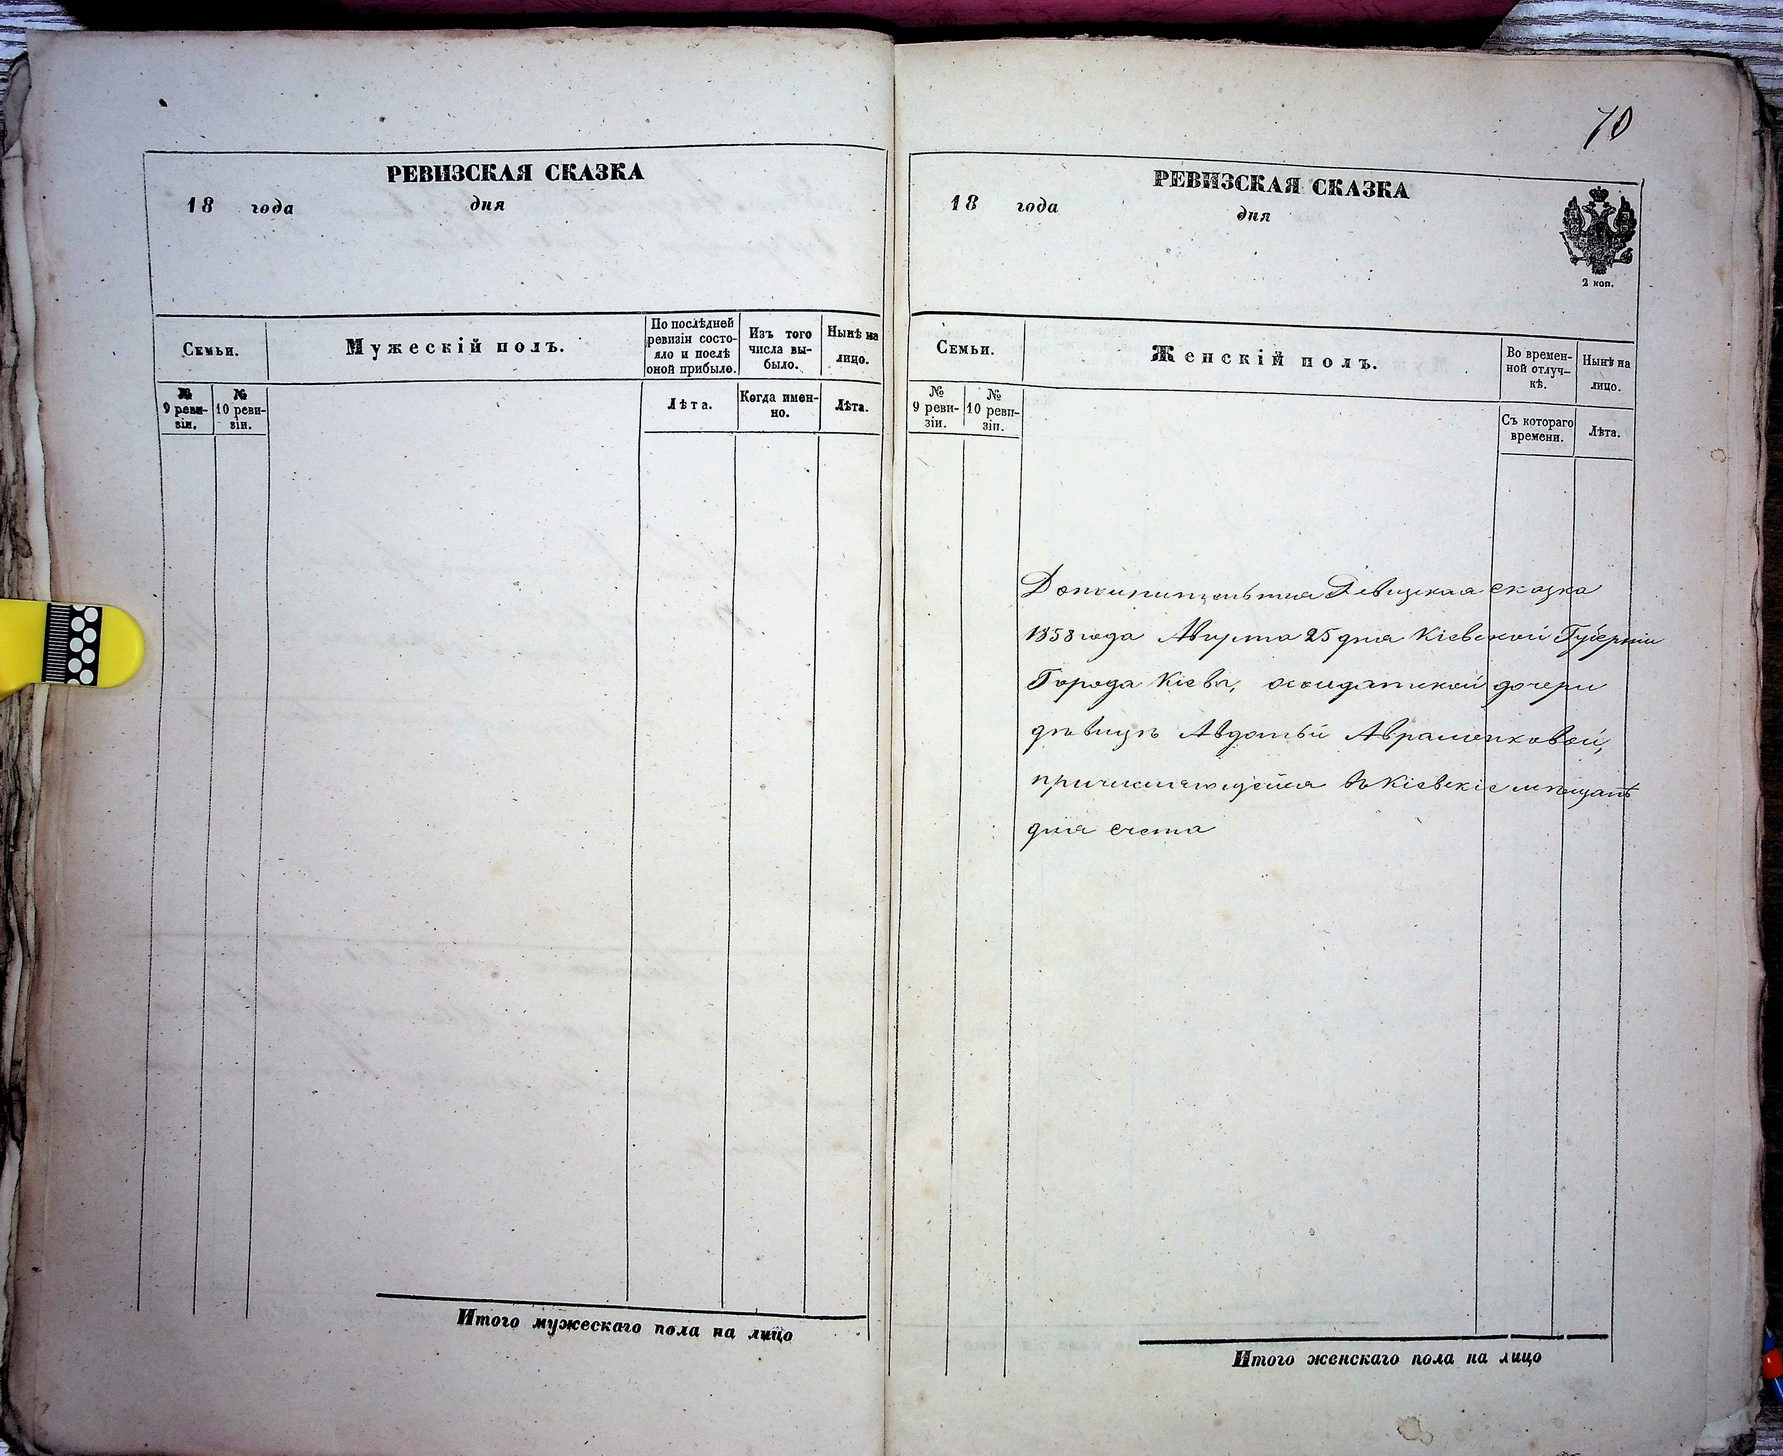 РЕВИЗСКАЯ СКАЗКА
18 года дня
Семьи.
Мужескій полъ.
По послѣдней
ревизіи состо-
яло и послѣ
оной прибыло.
Изъ того
числа вы-
было.
Нынѣ на
лицо.
№
9 реви-
зіи.
№
10 реви-
зіи.
Лѣта.
Когда имен-
но.
Лѣта.
Итого мужескаго пола на лицо
70
РЕВИЗСКАЯ СКАЗКА
18 года дня
2 коп.
Семьи.
Женскій полъ.
Во времен-
ной отлуч-
кѣ.
Нынѣ на
лицо.
№
9 реви-
зіи.
№
10 реви-
зіи.
Съ котораго
времени.
Лѣта.
Дополнительная Ревизская сказка
1858 года Августа 25 дня Кіевской Губерніи
Города Кіева, солдатской дочери
дѣвицѣ Авдотьи Авраменковой,
причисляющейся въ Кіевскіе мѣщанѣ
для счета
Итого женскаго пола на лицо